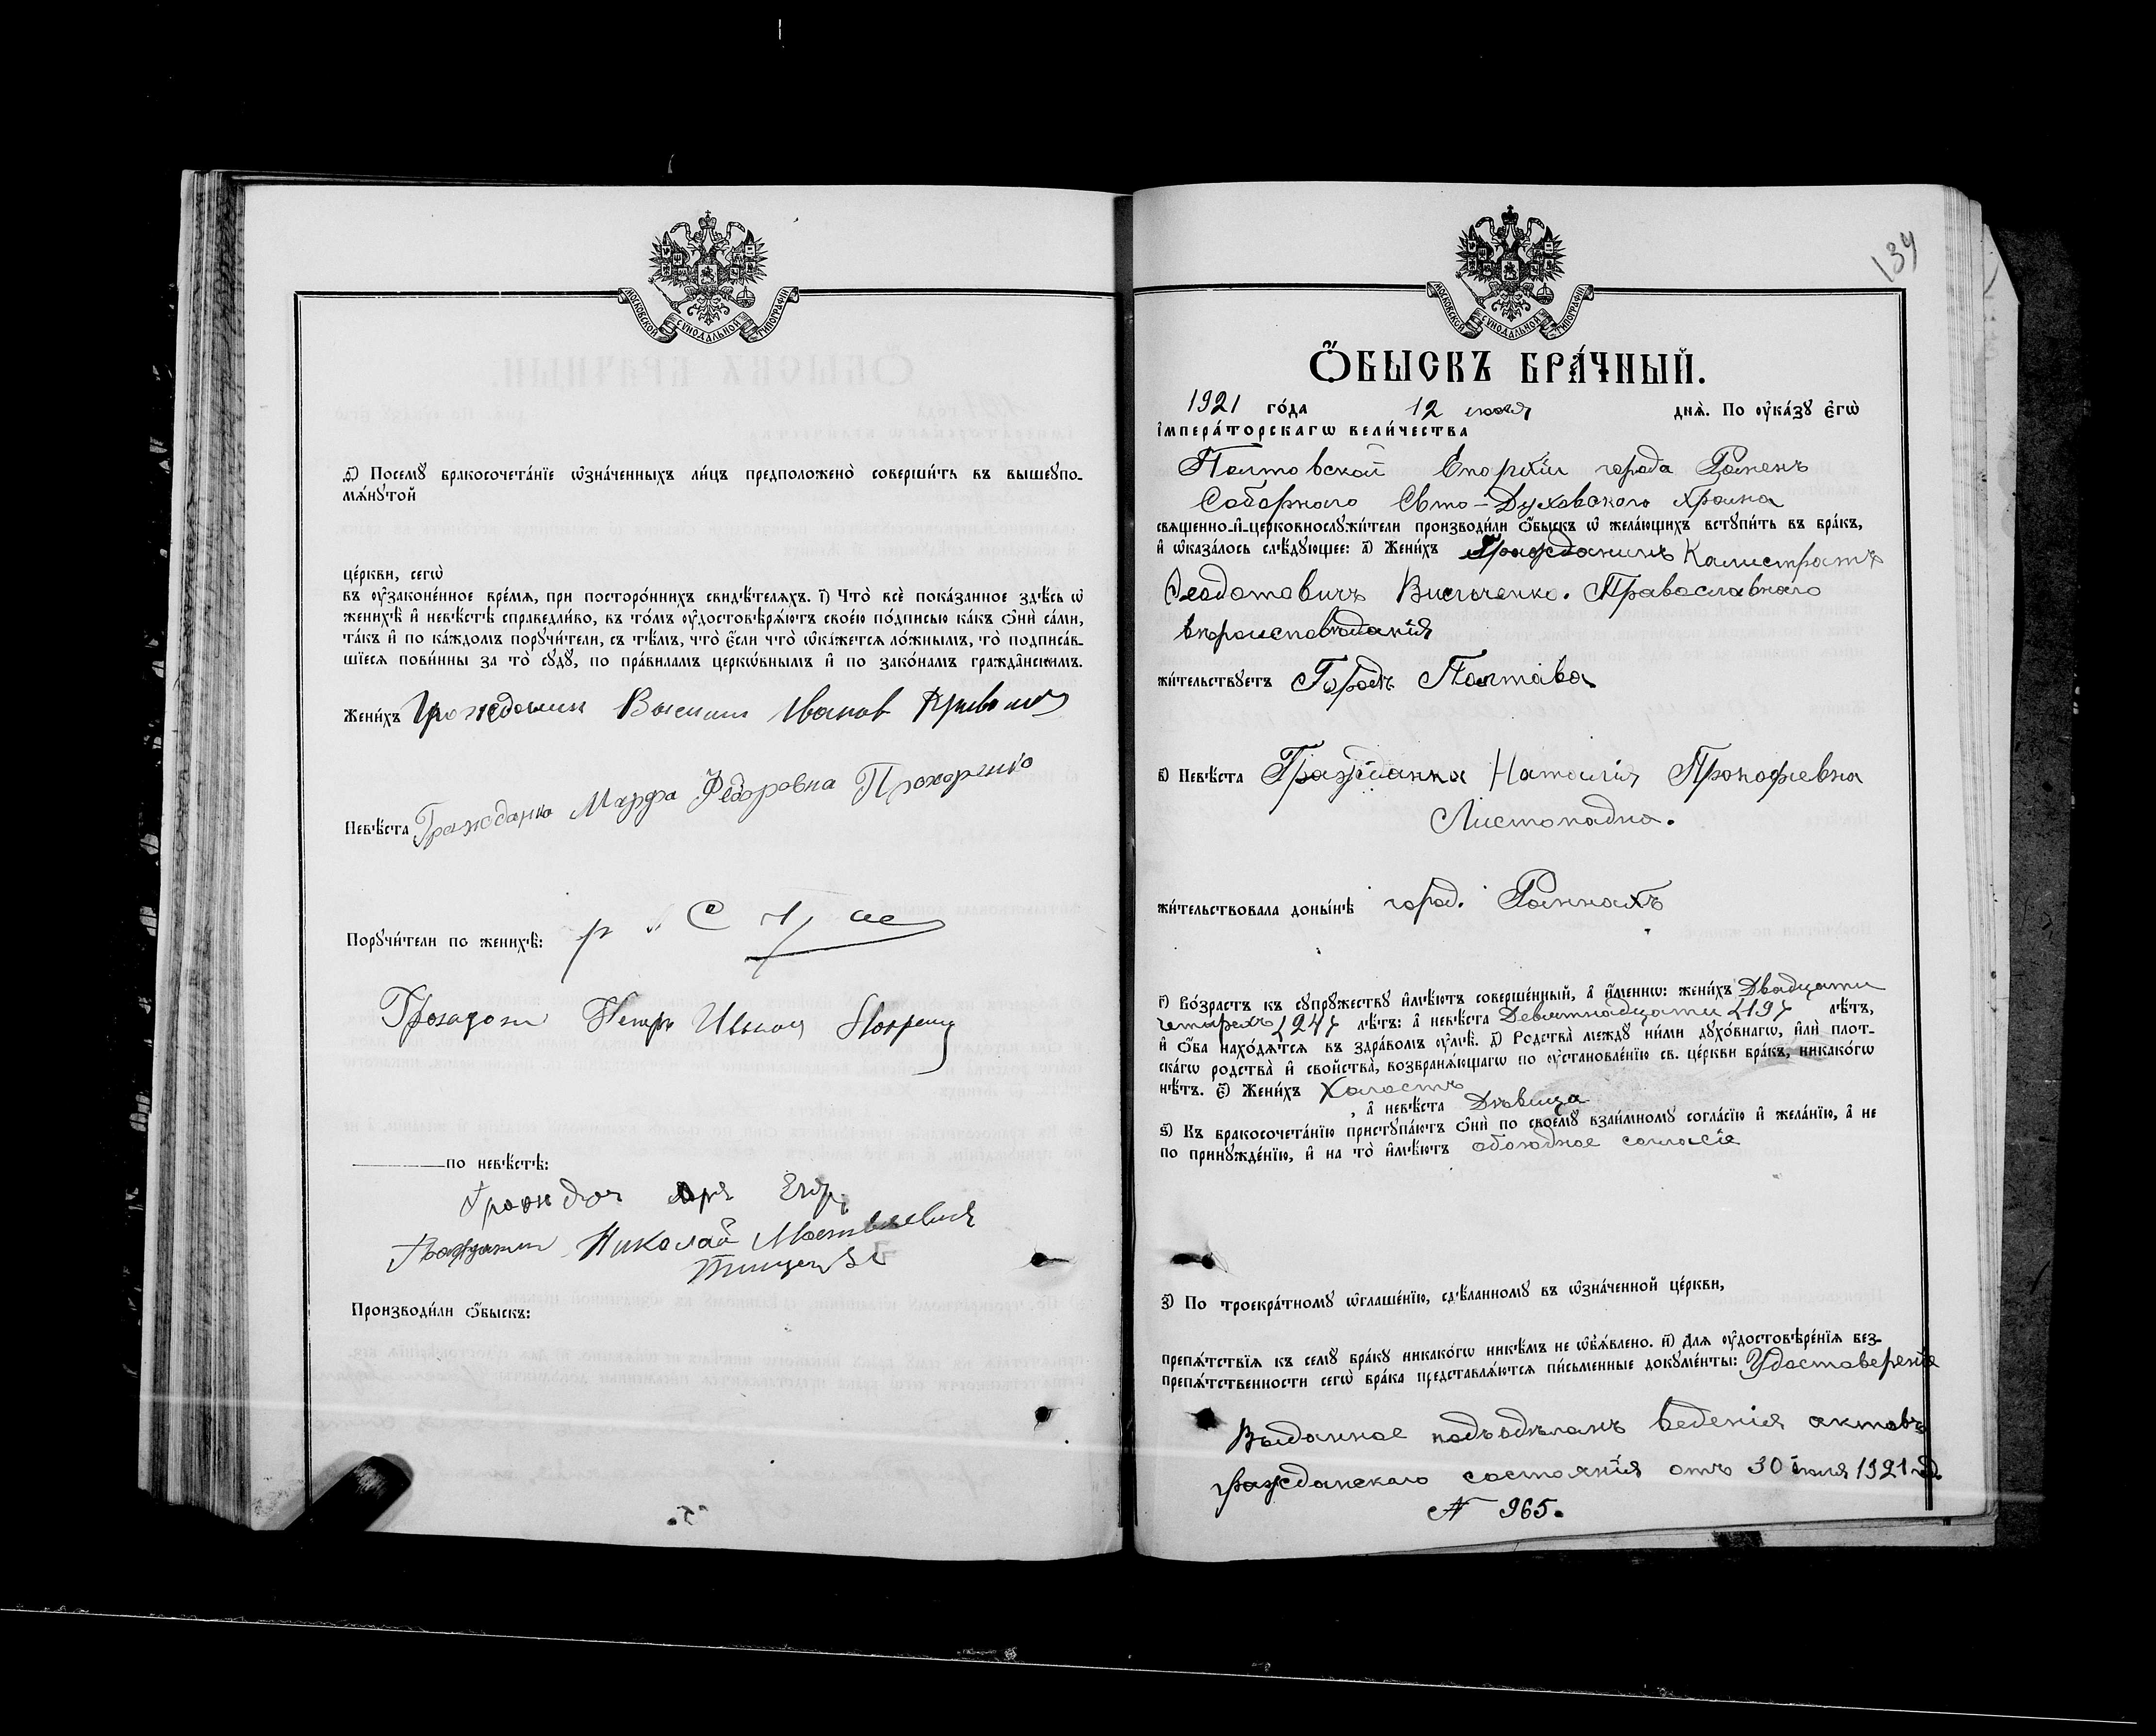 МОСКОВСКОЙ СѴНОДАЛЬНОЙ ТИПОГРАФІИ
д҃і) Посемꙋ̀ бракосочета́нїе ѡ҆зна́ченныхъ ли́цъ предположено̀ соверши́ть въ вышеꙋпо-
мѧ́нꙋтой
це́ркви, сегѡ̀
въ ᲂу҆зако́ненное вре́мѧ, при посторо́ннихъ свидѣ́телѧхъ. і҃) Что̀ всѐ пока́занное здѣ́сь ѡ҆
женихѣ̀ и҆ невѣ́стѣ справедли́во, въ то́мъ ᲂу҆достовѣрѧ́ютъ свое́ю по́дписью ка́къ ѻ҆нѝ са́ми,
та́къ и҆ по ка́ждомъ порꙋчи́тели, съ тѣ́мъ, что̀ є҆́сли что̀ ѡ҆ка́жетсѧ ло́жнымъ, то̀ подписа́в-
шїесѧ пови́нны за то̀ сꙋдꙋ̀, по пра́виламъ церкѡ́внымъ и҆ по зако́намъ гражда̑нскимъ.
Жени́хъ Иванов
Невѣ́ста Гражданка Марфа Федоровна Прохоренко
Порꙋчи́тели по женихѣ̀:
Петръ
по невѣ́стѣ:
Николай Матвеевич
Производи́ли ѻ҆́быскъ:
134
МОСКОВСКОЙ СѴНОДАЛЬНОЙ ТИПОГРАФІИ
Ѻ҆́быскъ бра́чный.
1921 го́да 12 июля днѧ̀. По ᲂу҆ка́зꙋ є҆гѡ̀
і҆мпера́торскагѡ вели́чества
Полтовской Епархіи города Ромен
Соборного Свто-Духовского храма
свѧще́нно-и҆-церковнослꙋжи́тели производи́ли ѻ҆́быскъ ѡ҆ жела́ющихъ встꙋпи́ть въ бра́къ,
и҆ ѡ҆каза́лось слѣ́дꙋющее: а҃) Жени́хъ Гражданинъ Калистратъ
Феодотовичъ Православного
вѣроисповѣданія
жи́тельствꙋетъ Городъ Полтава
в҃) Невѣ́ста Гражданка Наталія Прокофіевна
Листопадна.
жи́тельствовала доны́нѣ город. Ромнахъ
г҃) Во́зрастъ къ сꙋпрꙋ́жествꙋ и҆мѣ́ютъ соверше́нный, а҆ и҆́меннѡ: жени́хъ Двадцати
четырехъ (24) лѣ́тъ: а҆ невѣ́ста Девятнадцати (19) лѣ́тъ,
и҆ ѻ҆́ба нахо́дѧтсѧ въ здра́вомъ ᲂу҆мѣ̀. д҃) Родства̀ междꙋ̀ ни́ми дꙋхо́внагѡ, и҆лѝ пло́т-
скагѡ родства̀ и҆ свойства̀, возбранѧ́ющагѡ по ᲂу҆становле́нїю св. це́ркви бра́къ, никако́гѡ
нѣ́тъ. є҃) Жени́хъ Холостъ
, а҆ невѣ́ста Дѣвица
ѕ҃) Къ бракосочета́нїю пристꙋпа́ютъ ѻ҆нѝ по своемꙋ̀ взаи́мномꙋ согла́сїю и҆ жела́нїю, а҆ не
по принꙋжде́нїю, и҆ на то̀ и҆мѣ́ютъ обоюдное согласіе
з҃) По троекра́тномꙋ ѡ҆глаше́нїю, сдѣ́ланномꙋ въ ѡ҆зна́ченной це́ркви,
препѧ́тствїѧ къ семꙋ̀ бра́кꙋ никако́гѡ никѣ́мъ не ѡ҆б̾ѧ́влено. и҃) Длѧ ᲂу҆достовѣре́нїѧ без-
препѧ́тственности сегѡ̀ бра́ка представлѧ́ютсѧ пи́сьменные докꙋме́нты: Удостоверение
Выданное подъодѣломъ веденія актовъ
гражданскаго состоянія отъ 30 іюля 1921 год.
№ 965.